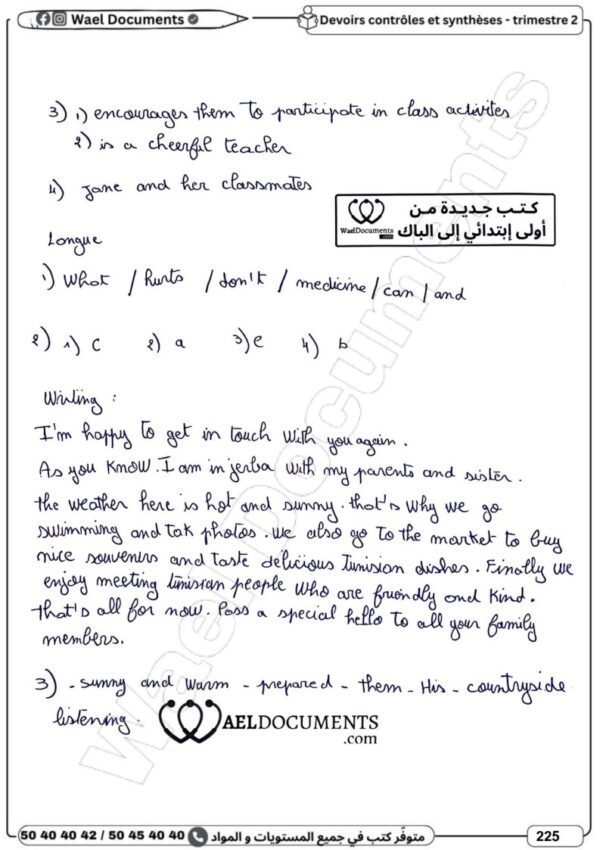 Wael Documents
Devoirs contrôles et synthèses - trimestre 2
3) 1) encourages them to participate in class activites
2) is a cheerful teacher
4) Jane and her classmates
كتب جديدة من
أولى إبتدائي إلى الباك
WaelDocuments
.com
Longue
1) What / hurts / don't / medicine / can / and
2) 1) c 2) a 3) e 4) b
Writing :
I'm happy to get in touch with you again.
As you know. I am in jerba with my parents and sister.
the weather here is hot and sunny. that's why we go
swimming and tak photos. we also go to the market to buy
nice souvenirs and taste delicious tunisian dishes. Finally we
enjoy meeting tunisian people who are friendly and kind.
that's all for now. Pass a special hello to all your family
members.
3) - sunny and warm - prepared - them - His - countryside
listening.
WAELDOCUMENTS
.com
Wael Documents
50 40 40 42 / 50 45 40 40
متوفّر كتب في جميع المستويات و المواد
225